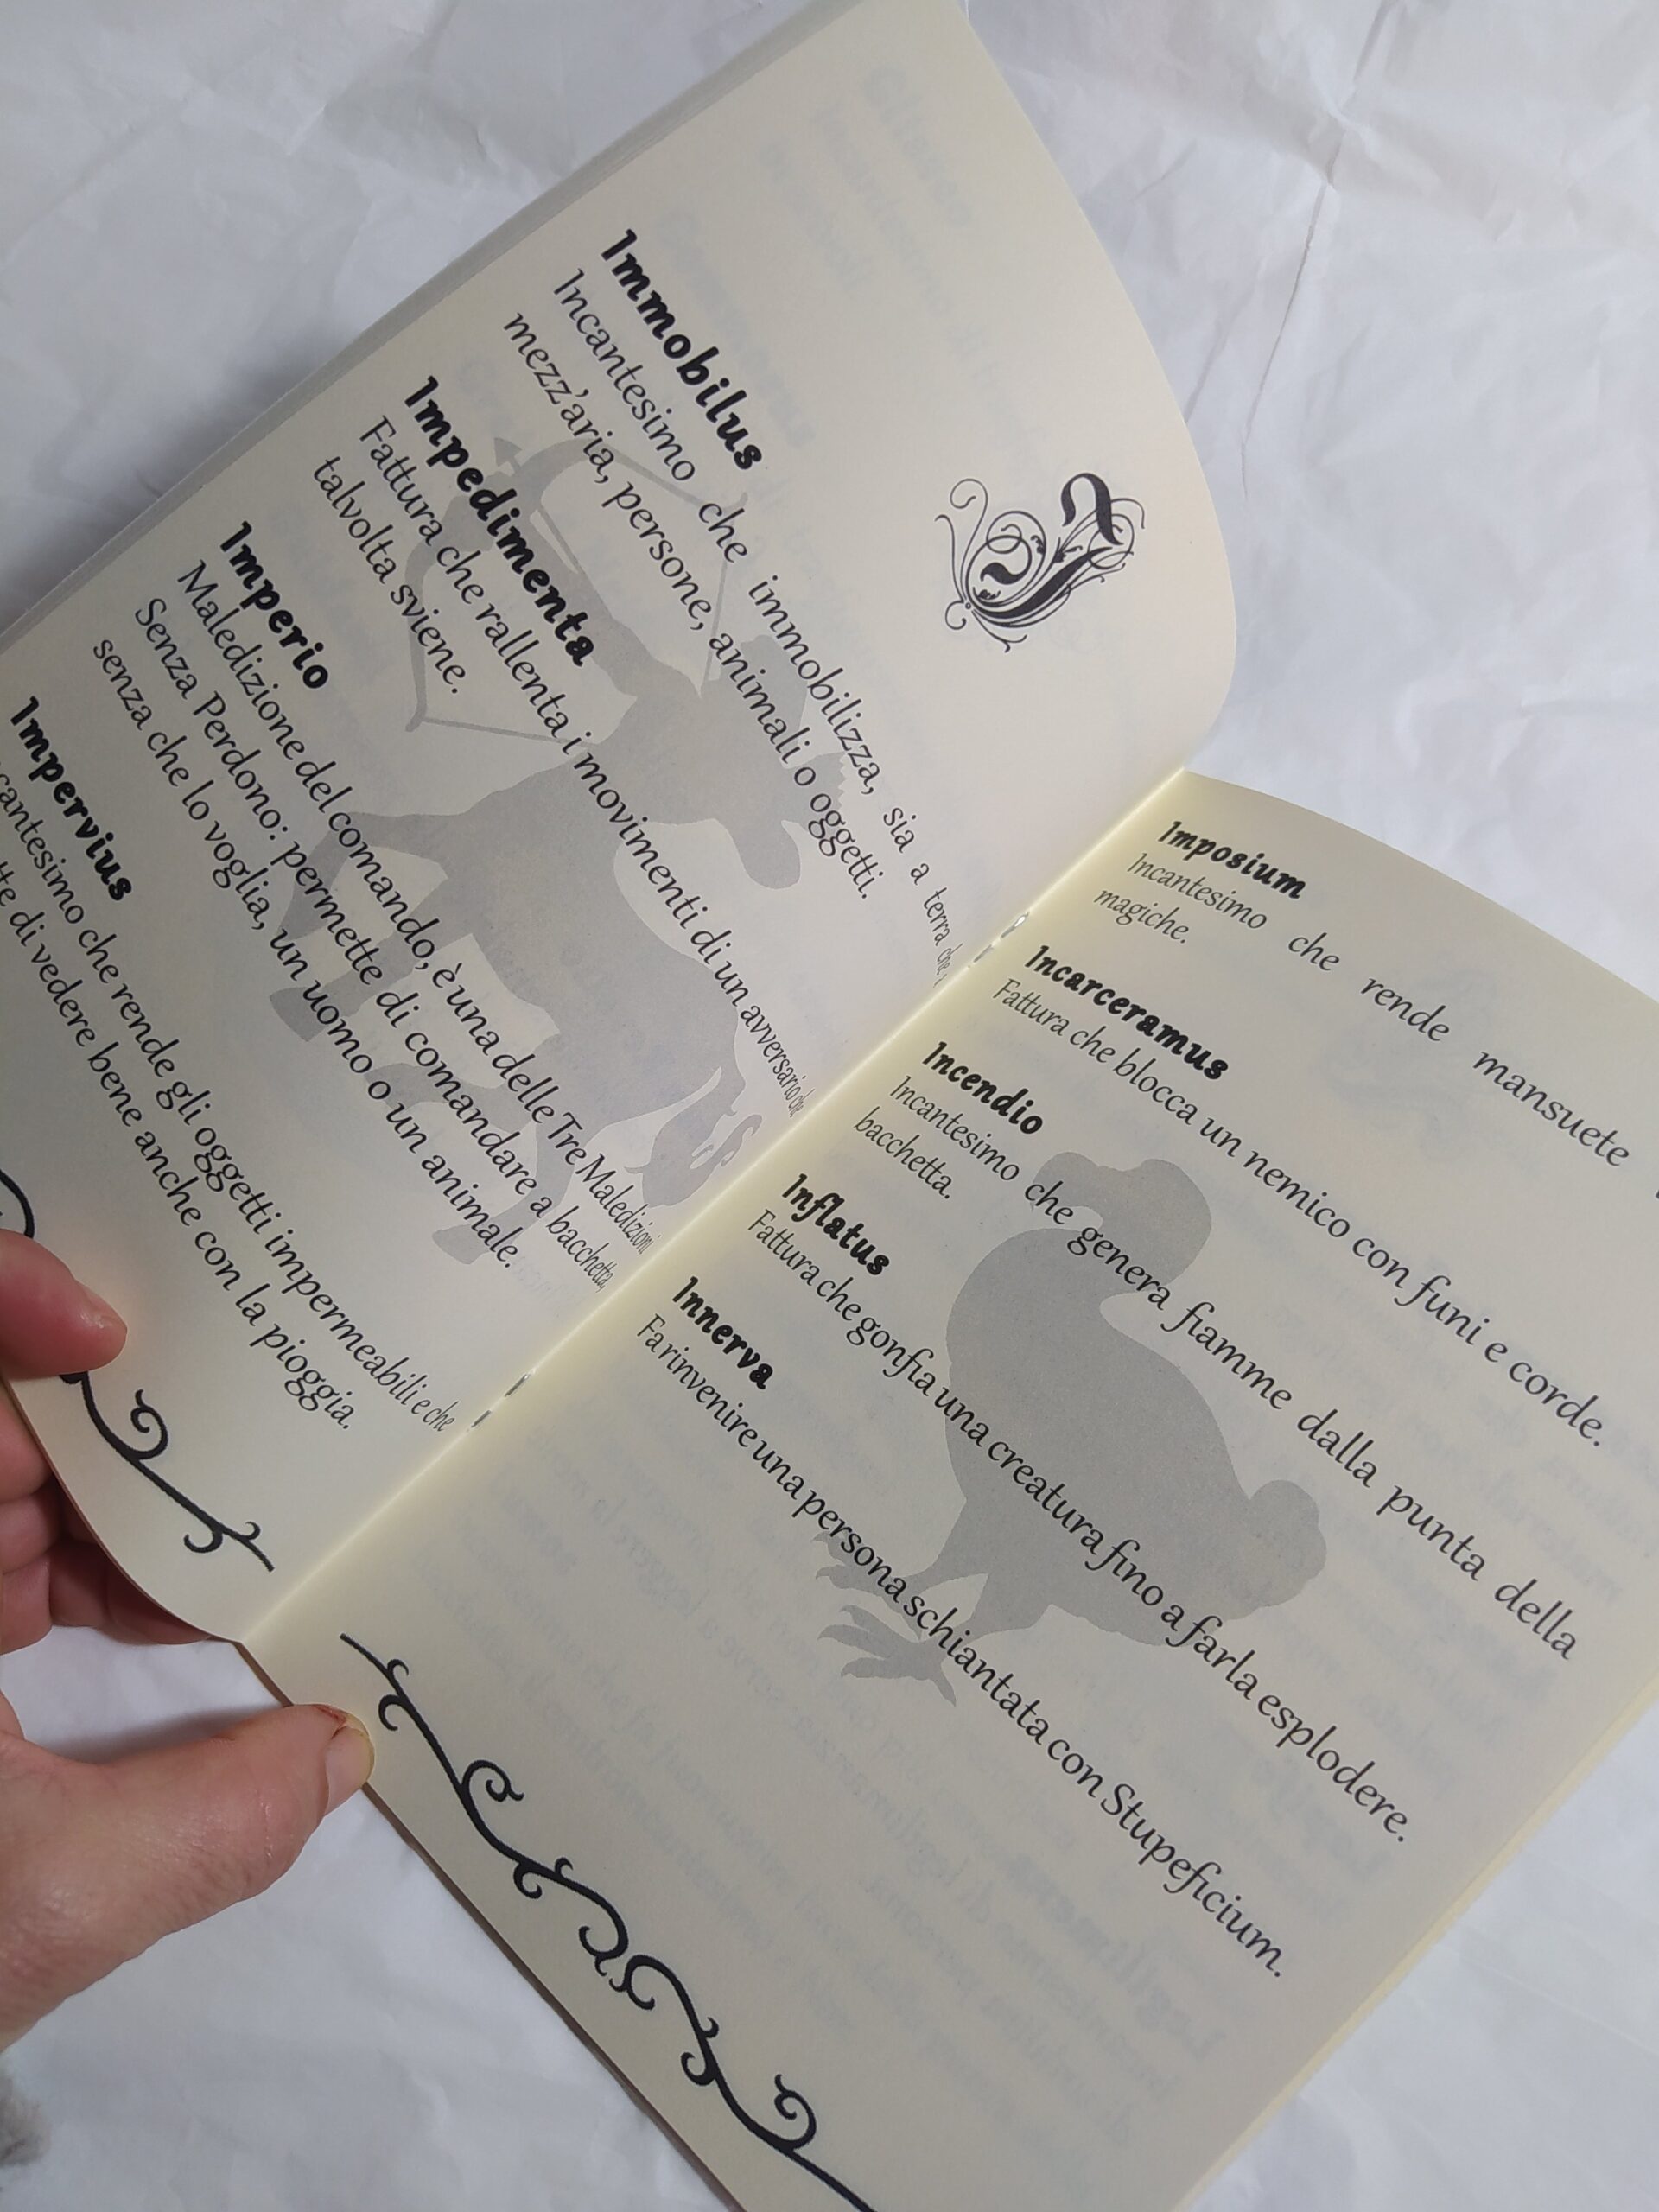 I
Immobilus
Incantesimo che immobilizza, sia a terra che
mezz'aria, persone, animali o oggetti.
Impedimenta
Fattura che rallenta i movimenti di un avversario che
talvolta sviene.
Imperio
Maledizione del comando, è una delle Tre Maledizioni
Senza Perdono: permette di comandare a bacchetta,
senza che lo voglia, un uomo o un animale.
Impervius
che rende gli oggetti impermeabili e che
di vedere bene anche con la pioggia.
Imposium
Incantesimo che rende mansuete
magiche.
Incarceramus
Fattura che blocca un nemico con funi e corde.
Incendio
Incantesimo che genera fiamme dalla punta della
bacchetta.
Inflatus
Fattura che gonfia una creatura fino a farla esplodere.
Innerva
Fa rinvenire una persona schiantata con Stupeficium.